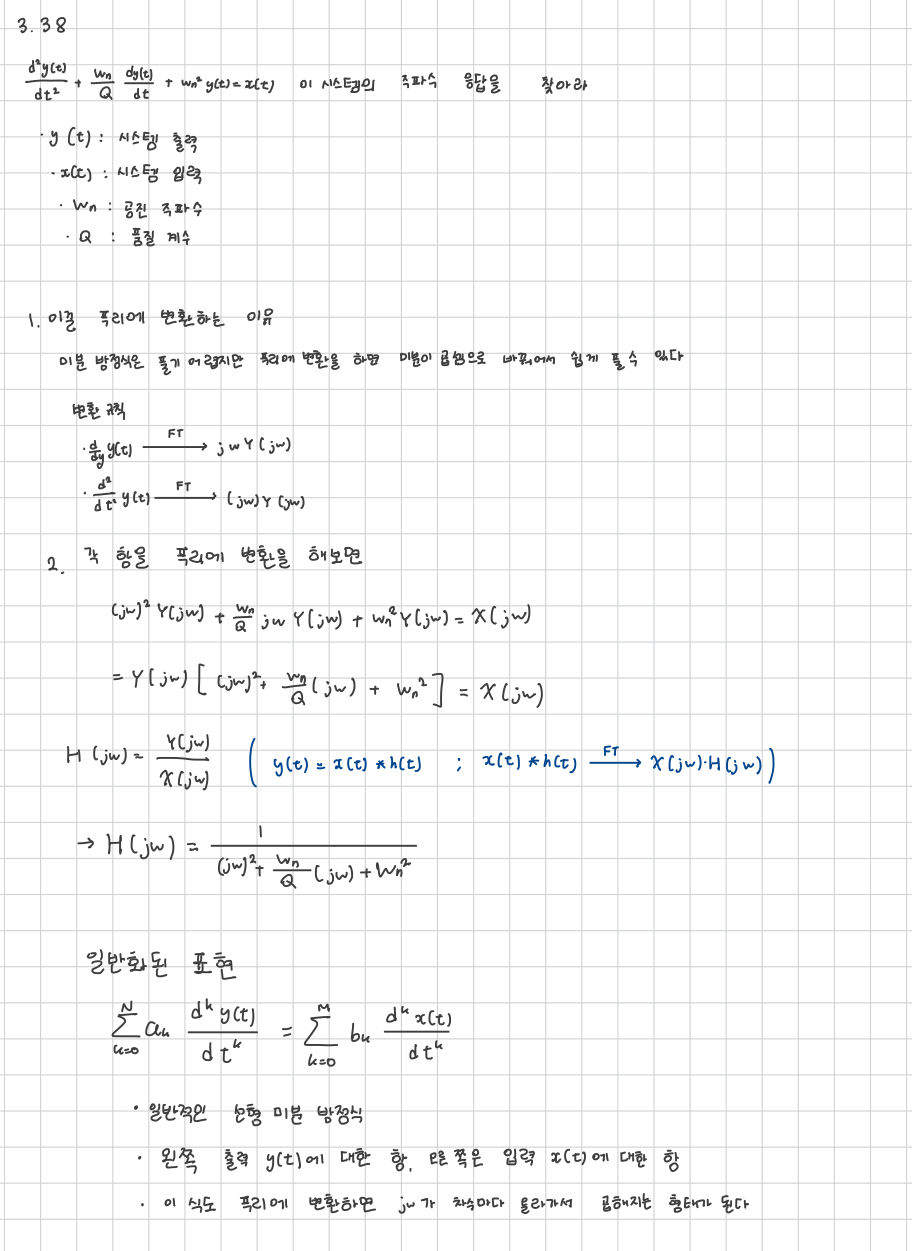 3.38
d²y(t)/dt² + Wn/Q dy(t)/dt + Wn² y(t) = x(t) 이 시스템의 주파수 응답을 찾아라
· y(t) : 시스템 출력
· x(t) : 시스템 입력
· Wn : 공진 주파수
· Q : 품질 계수
1. 이걸 푸리에 변환하는 이유
미분 방정식은 풀기 어렵지만 푸리에 변환을 하면 미분이 곱셈으로 바뀌어서 쉽게 풀 수 있다
변환 규칙
· d/dy y(t) —FT→ jw Y(jw)
· d²/dt² y(t) —FT→ (jw) Y(jw)
2. 각 항을 푸리에 변환을 해보면
(jw)² Y(jw) + Wn/Q jw Y(jw) + Wn² Y(jw) = X(jw)
= Y(jw) [ (jw)² + Wn/Q (jw) + Wn² ] = X(jw)
H(jw) = Y(jw)/X(jw) ( y(t) = x(t) * h(t) ; x(t) * h(t) —FT→ X(jw)·H(jw) )
→ H(jw) = 1/((jw)² + Wn/Q (jw) + Wn²)
일반화된 표현
∑_{k=0}^{N} a_k d^k y(t)/dt^k = ∑_{k=0}^{M} b_k d^k x(t)/dt^k
· 일반적인 선형 미분 방정식
· 왼쪽 출력 y(t)에 대한 항, 오른쪽은 입력 x(t)에 대한 항
· 이 식도 푸리에 변환하면 jw가 차수마다 올라가서 곱해지는 형태가 된다